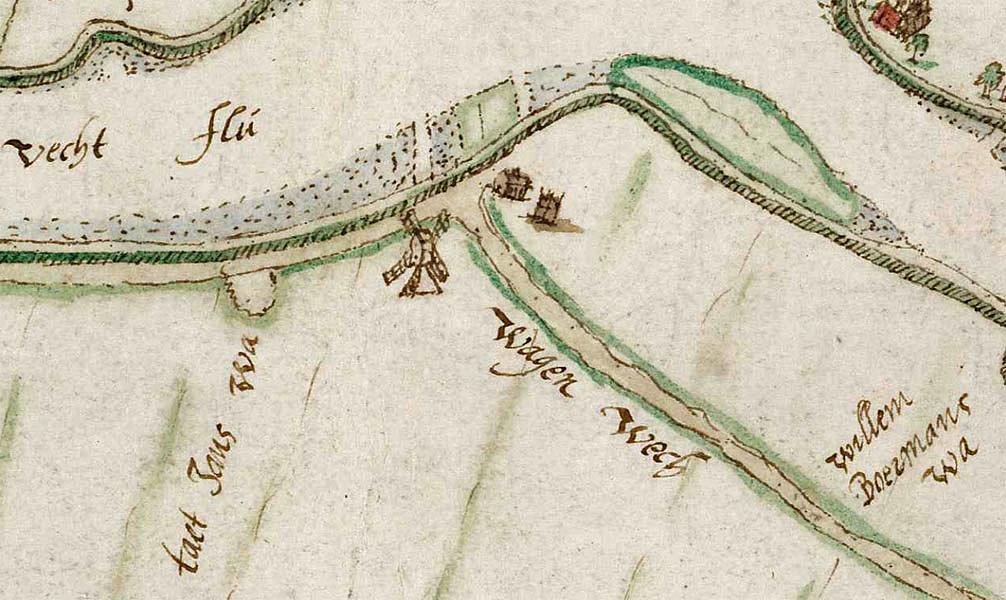 vecht flú
wagen wech
taet Jans wa
willem
Boermans
wa